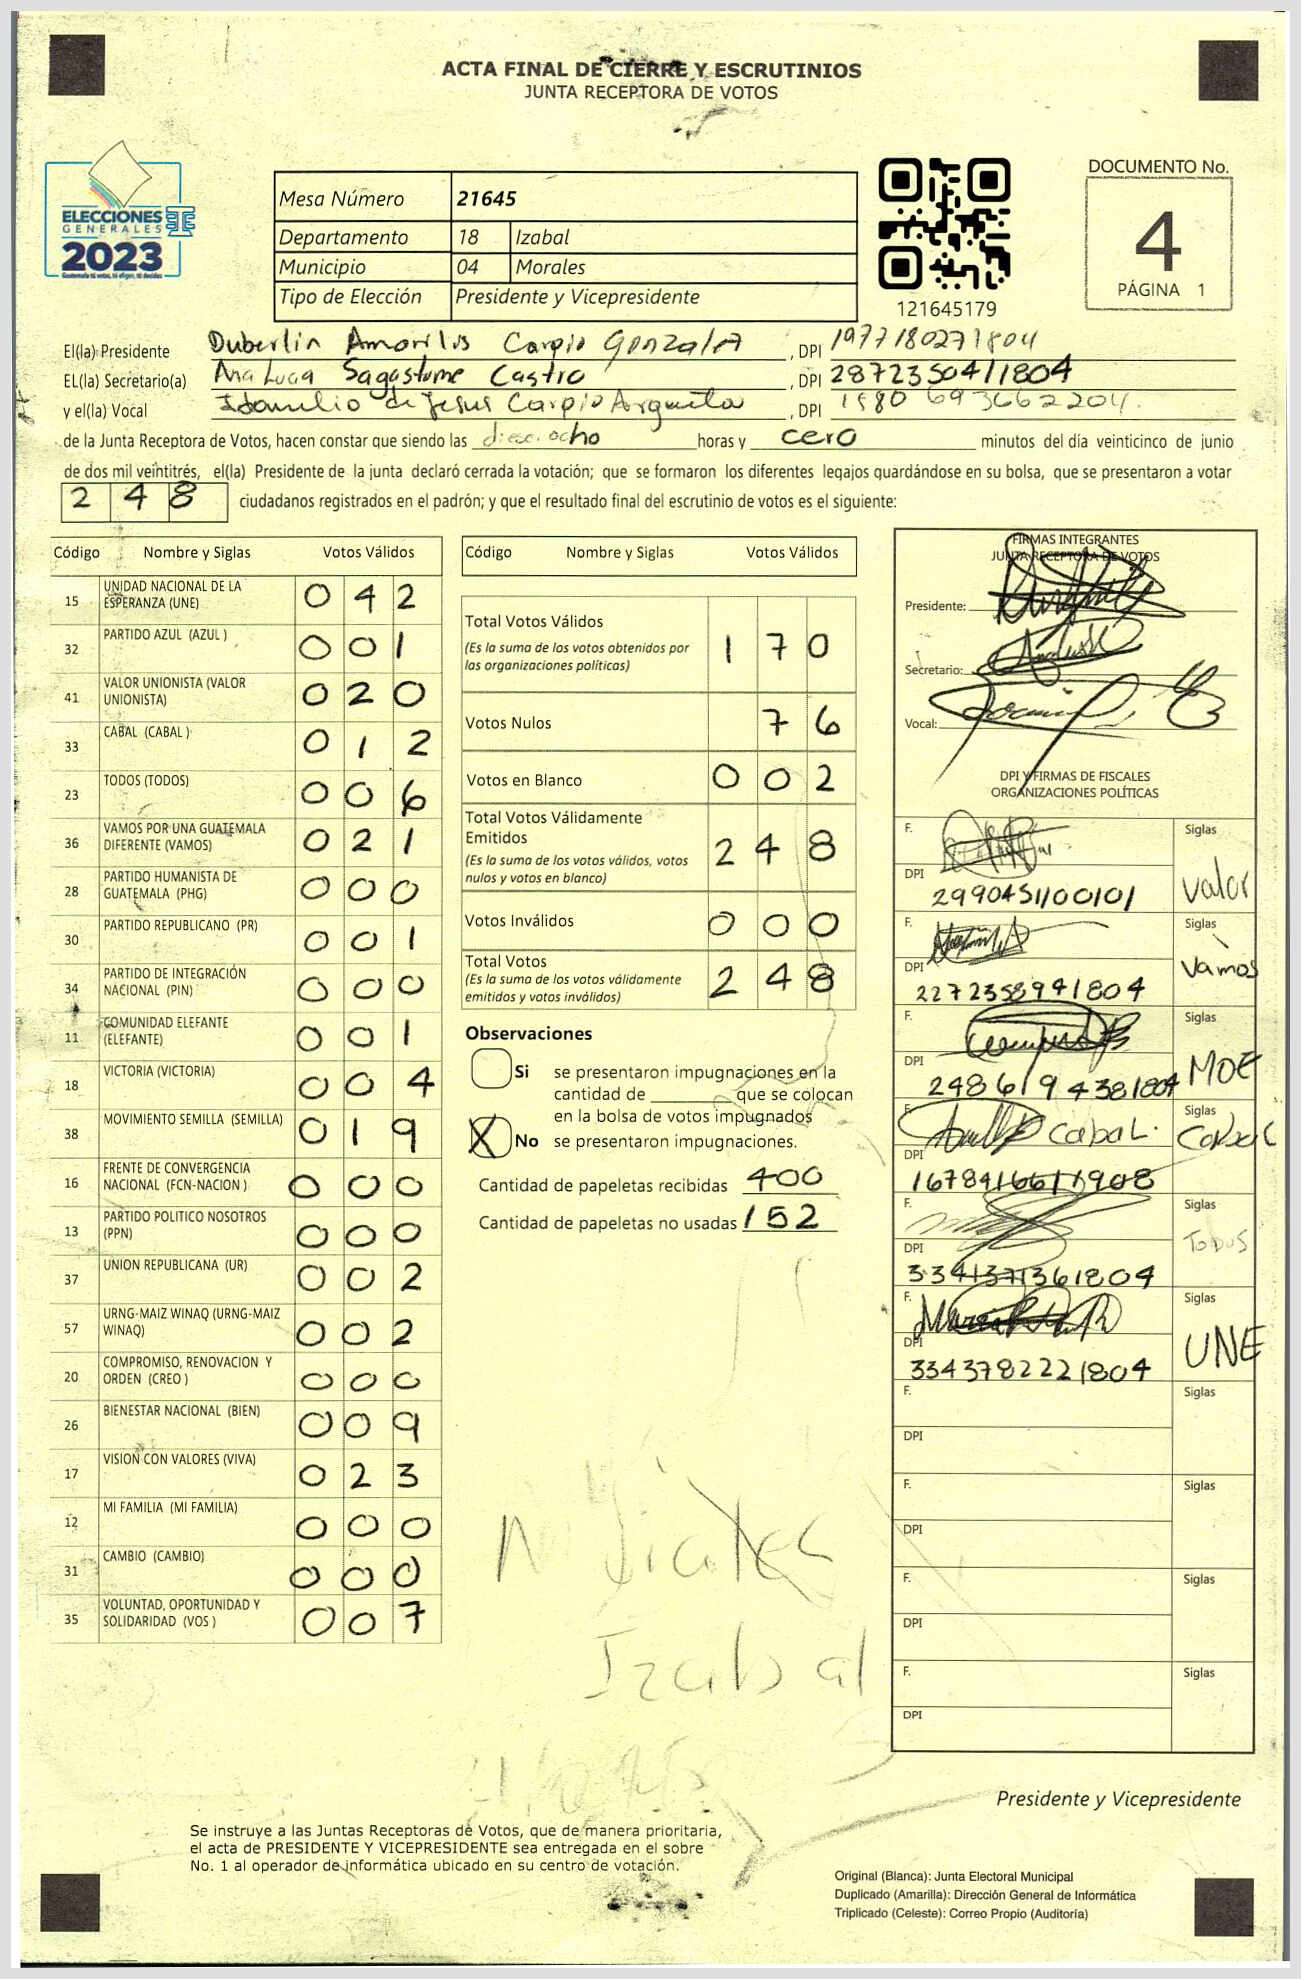 ACTA FINAL DE CIERRE Y ESCRUTINIOS
JUNTA RECEPTORA DE VOTOS
ELECCIONES
GENERALES
2023
Guatemala tú votas, tú eliges, tú decides
Mesa Número 21645
Departamento 18 Izabal
Municipio 04 Morales
Tipo de Elección Presidente y Vicepresidente
121645179
DOCUMENTO No.
4
PÁGINA 1
El(la) Presidente Duberlin Amarilis Carpio Gonzalez, DPI 1977180271804
EL(la) Secretario(a) Ana Lucia Sagastume Castro, DPI 2872350411804
y el(la) Vocal Idamilio de Jesus Carpio Argueta, DPI 1980 693662204
de la Junta Receptora de Votos, hacen constar que siendo las dieciocho horas y cero minutos del día veinticinco de junio
de dos mil veintitrés, el(la) Presidente de la junta declaró cerrada la votación; que se formaron los diferentes legajos guardándose en su bolsa, que se presentaron a votar
248 ciudadanos registrados en el padrón; y que el resultado final del escrutinio de votos es el siguiente:
Código Nombre y Siglas Votos Válidos
15 UNIDAD NACIONAL DE LA ESPERANZA (UNE) 042
32 PARTIDO AZUL (AZUL ) 001
41 VALOR UNIONISTA (VALOR UNIONISTA) 020
33 CABAL (CABAL ) 012
23 TODOS (TODOS) 006
36 VAMOS POR UNA GUATEMALA DIFERENTE (VAMOS) 021
28 PARTIDO HUMANISTA DE GUATEMALA (PHG) 000
30 PARTIDO REPUBLICANO (PR) 001
34 PARTIDO DE INTEGRACIÓN NACIONAL (PIN) 000
11 COMUNIDAD ELEFANTE (ELEFANTE) 001
18 VICTORIA (VICTORIA) 004
38 MOVIMIENTO SEMILLA (SEMILLA) 019
16 FRENTE DE CONVERGENCIA NACIONAL (FCN-NACION ) 000
13 PARTIDO POLITICO NOSOTROS (PPN) 000
37 UNION REPUBLICANA (UR) 002
57 URNG-MAIZ WINAQ (URNG-MAIZ WINAQ) 002
20 COMPROMISO, RENOVACION Y ORDEN (CREO ) 000
26 BIENESTAR NACIONAL (BIEN) 009
17 VISION CON VALORES (VIVA) 023
12 MI FAMILIA (MI FAMILIA) 000
31 CAMBIO (CAMBIO) 000
35 VOLUNTAD, OPORTUNIDAD Y SOLIDARIDAD (VOS ) 007
Código Nombre y Siglas Votos Válidos
Total Votos Válidos 170
(Es la suma de los votos obtenidos por
las organizaciones políticas)
Votos Nulos 76
Votos en Blanco 002
Total Votos Válidamente
Emitidos 248
(Es la suma de los votos válidos, votos
nulos y votos en blanco)
Votos Inválidos 000
Total Votos 248
(Es la suma de los votos válidamente
emitidos y votos inválidos)
Observaciones
Si se presentaron impugnaciones en la
cantidad de que se colocan
en la bolsa de votos impugnados
X No se presentaron impugnaciones.
Cantidad de papeletas recibidas 400
Cantidad de papeletas no usadas 152
Izabal
FIRMAS INTEGRANTES
JUNTA RECEPTORA DE VOTOS
Presidente:
Secretario:
Vocal:
DPI Y FIRMAS DE FISCALES
ORGANIZACIONES POLÍTICAS
F. Siglas
DPI 2990451100101 Valor
F. Siglas
DPI 2272358941804 Vamos
F. Siglas
DPI 2486194381804 MOE
F. Cabal. Siglas
DPI 1678416611908 Cabal
F. Siglas
DPI 3341371361804 Todos
F. Siglas
DPI 3343782221804 UNE
F. Siglas
DPI
F. Siglas
DPI
F. Siglas
DPI
F. Siglas
DPI
Presidente y Vicepresidente
Se instruye a las Juntas Receptoras de Votos, que de manera prioritaria,
el acta de PRESIDENTE Y VICEPRESIDENTE sea entregada en el sobre
No. 1 al operador de informática ubicado en su centro de votación.
Original (Blanca): Junta Electoral Municipal
Duplicado (Amarilla): Dirección General de Informática
Triplicado (Celeste): Correo Propio (Auditoría)